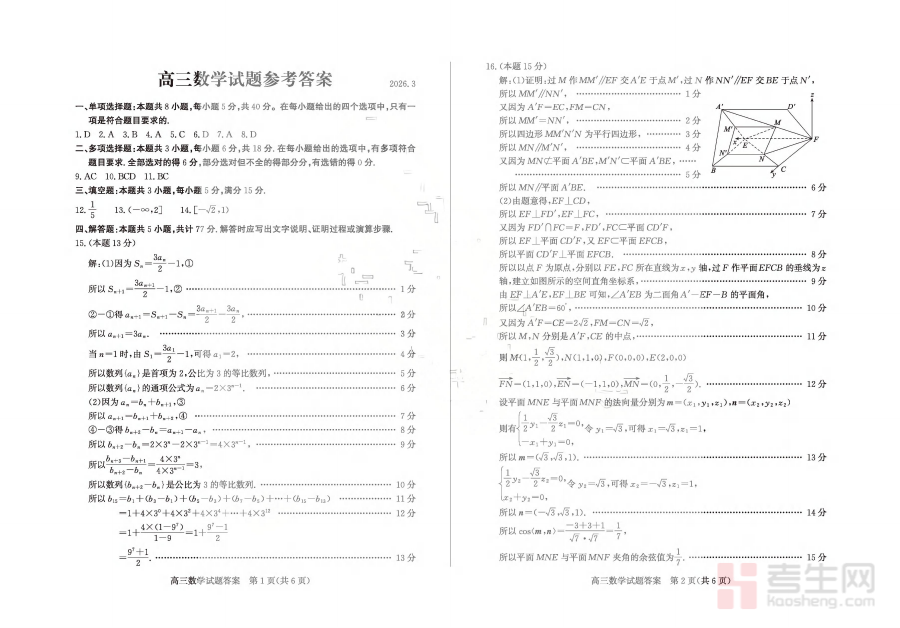 高三数学试题参考答案
2026.3
一、单项选择题:本题共8小题,每小题5分,共40分。在每小题给出的四个选项中,只有一
项是符合题目要求的.
1.D 2.A 3.B 4.A 5.C 6.D 7.A 8.D
二、多项选择题:本题共3小题,每小题6分,共18分.在每小题给出的选项中,有多项符合
题目要求.全部选对的得6分,部分选对但不全的得部分分,有选错的得0分.
9.AC 10.BCD 11.BC
三、填空题:本题共3小题,每小题5分,满分15分.
12.1/5 13.(-∞,2] 14.[-√2,1)
四、解答题:本题共5小题,共计77分.解答时应写出文字说明、证明过程或演算步骤.
15.(本题13分)
解:(1)因为Sₙ=3aₙ/2-1,①
所以Sₙ₊₁=3aₙ₊₁/2-1,② …… 1分
②-①得aₙ₊₁=Sₙ₊₁-Sₙ=3aₙ₊₁/2-3aₙ/2, …… 2分
所以aₙ₊₁=3aₙ. …… 3分
当n=1时,由S₁=3a₁/2-1,可得a₁=2, …… 4分
所以数列{aₙ}是首项为2,公比为3的等比数列, …… 5分
所以数列{aₙ}的通项公式为aₙ=2×3ⁿ⁻¹. …… 6分
(2)因为aₙ=bₙ+bₙ₊₁,③
所以aₙ₊₁=bₙ₊₁+bₙ₊₂,④ …… 7分
④-③得bₙ₊₂-bₙ=aₙ₊₁-aₙ, …… 8分
所以bₙ₊₂-bₙ=2×3ⁿ-2×3ⁿ⁻¹=4×3ⁿ⁻¹, …… 9分
所以(bₙ₊₃-bₙ₊₁)/(bₙ₊₂-bₙ)=4×3ⁿ/4×3ⁿ⁻¹=3,
所以数列{bₙ₊₂-bₙ}是公比为3的等比数列. …… 10分
所以b₁₅=b₁+(b₃-b₁)+(b₅-b₃)+(b₇-b₅)+…+(b₁₅-b₁₃) …… 11分
=1+4×3⁰+4×3²+4×3⁴+…+4×3¹² …… 12分
=1+4×(1-9⁷)/(1-9)=1+(9⁷-1)/2
=(9⁷+1)/2. …… 13分
高三数学试题答案 第1页(共6页)
16.(本题15分)
解:(1)证明:过M作MM′∥EF交A′E于点M′,过N作NN′∥EF交BE于点N′,
所以MM′∥NN′, …… 1分
又因为A′F=EC,FM=CN,
所以MM′=NN′, …… 2分
所以四边形MM′N′N为平行四边形, …… 3分
所以MN∥M′N′, …… 4分
又因为MN⊄平面A′BE,M′N′⊂平面A′BE, ……
…… 5分
A′ D′ z M′ M x E F N′ N B C y
所以MN∥平面A′BE. …… 6分
(2)由题意得,EF⊥CD,
所以EF⊥FD′,EF⊥FC, …… 7分
又因为FD′∩FC=F,FD′,FC⊂平面CD′F,
所以EF⊥平面CD′F,又EF⊂平面EFCB,
所以平面CD′F⊥平面EFCB. …… 8分
所以以点F为原点,分别以FE,FC所在直线为x,y轴,过F作平面EFCB的垂线为z
轴,建立如图所示的空间直角坐标系, …… 9分
由EF⊥A′E,EF⊥BE可知,∠A′EB为二面角A′-EF-B的平面角,
所以∠A′EB=60°, …… 10分
又因为A′F=CE=2√2,FM=CN=√2,
所以M,N分别是A′F,CE的中点, …… 11分
则M(1,1/2,√3/2),N(1,1,0),F(0,0,0),E(2,0,0)
FN=(1,1,0),EN=(-1,1,0),MN=(0,1/2,-√3/2). …… 12分
设平面MNE与平面MNF的法向量分别为m=(x₁,y₁,z₁),n=(x₂,y₂,z₂)
则有{1/2y₁-√3/2z₁=0, -x₁+y₁=0, 令y₁=√3,可得x₁=√3,z₁=1,
所以m=(√3,√3,1). …… 13分
{1/2y₂-√3/2z₂=0, x₂+y₂=0, 令y₂=√3,可得x₂=-√3,z₂=1,
所以n=(-√3,√3,1). …… 14分
所以cos⟨m,n⟩=(-3+3+1)/(√7•√7)=1/7,
所以平面MNE与平面MNF夹角的余弦值为1/7. …… 15分
高三数学试题答案 第2页(共6页)
考生网
kaosheng.com